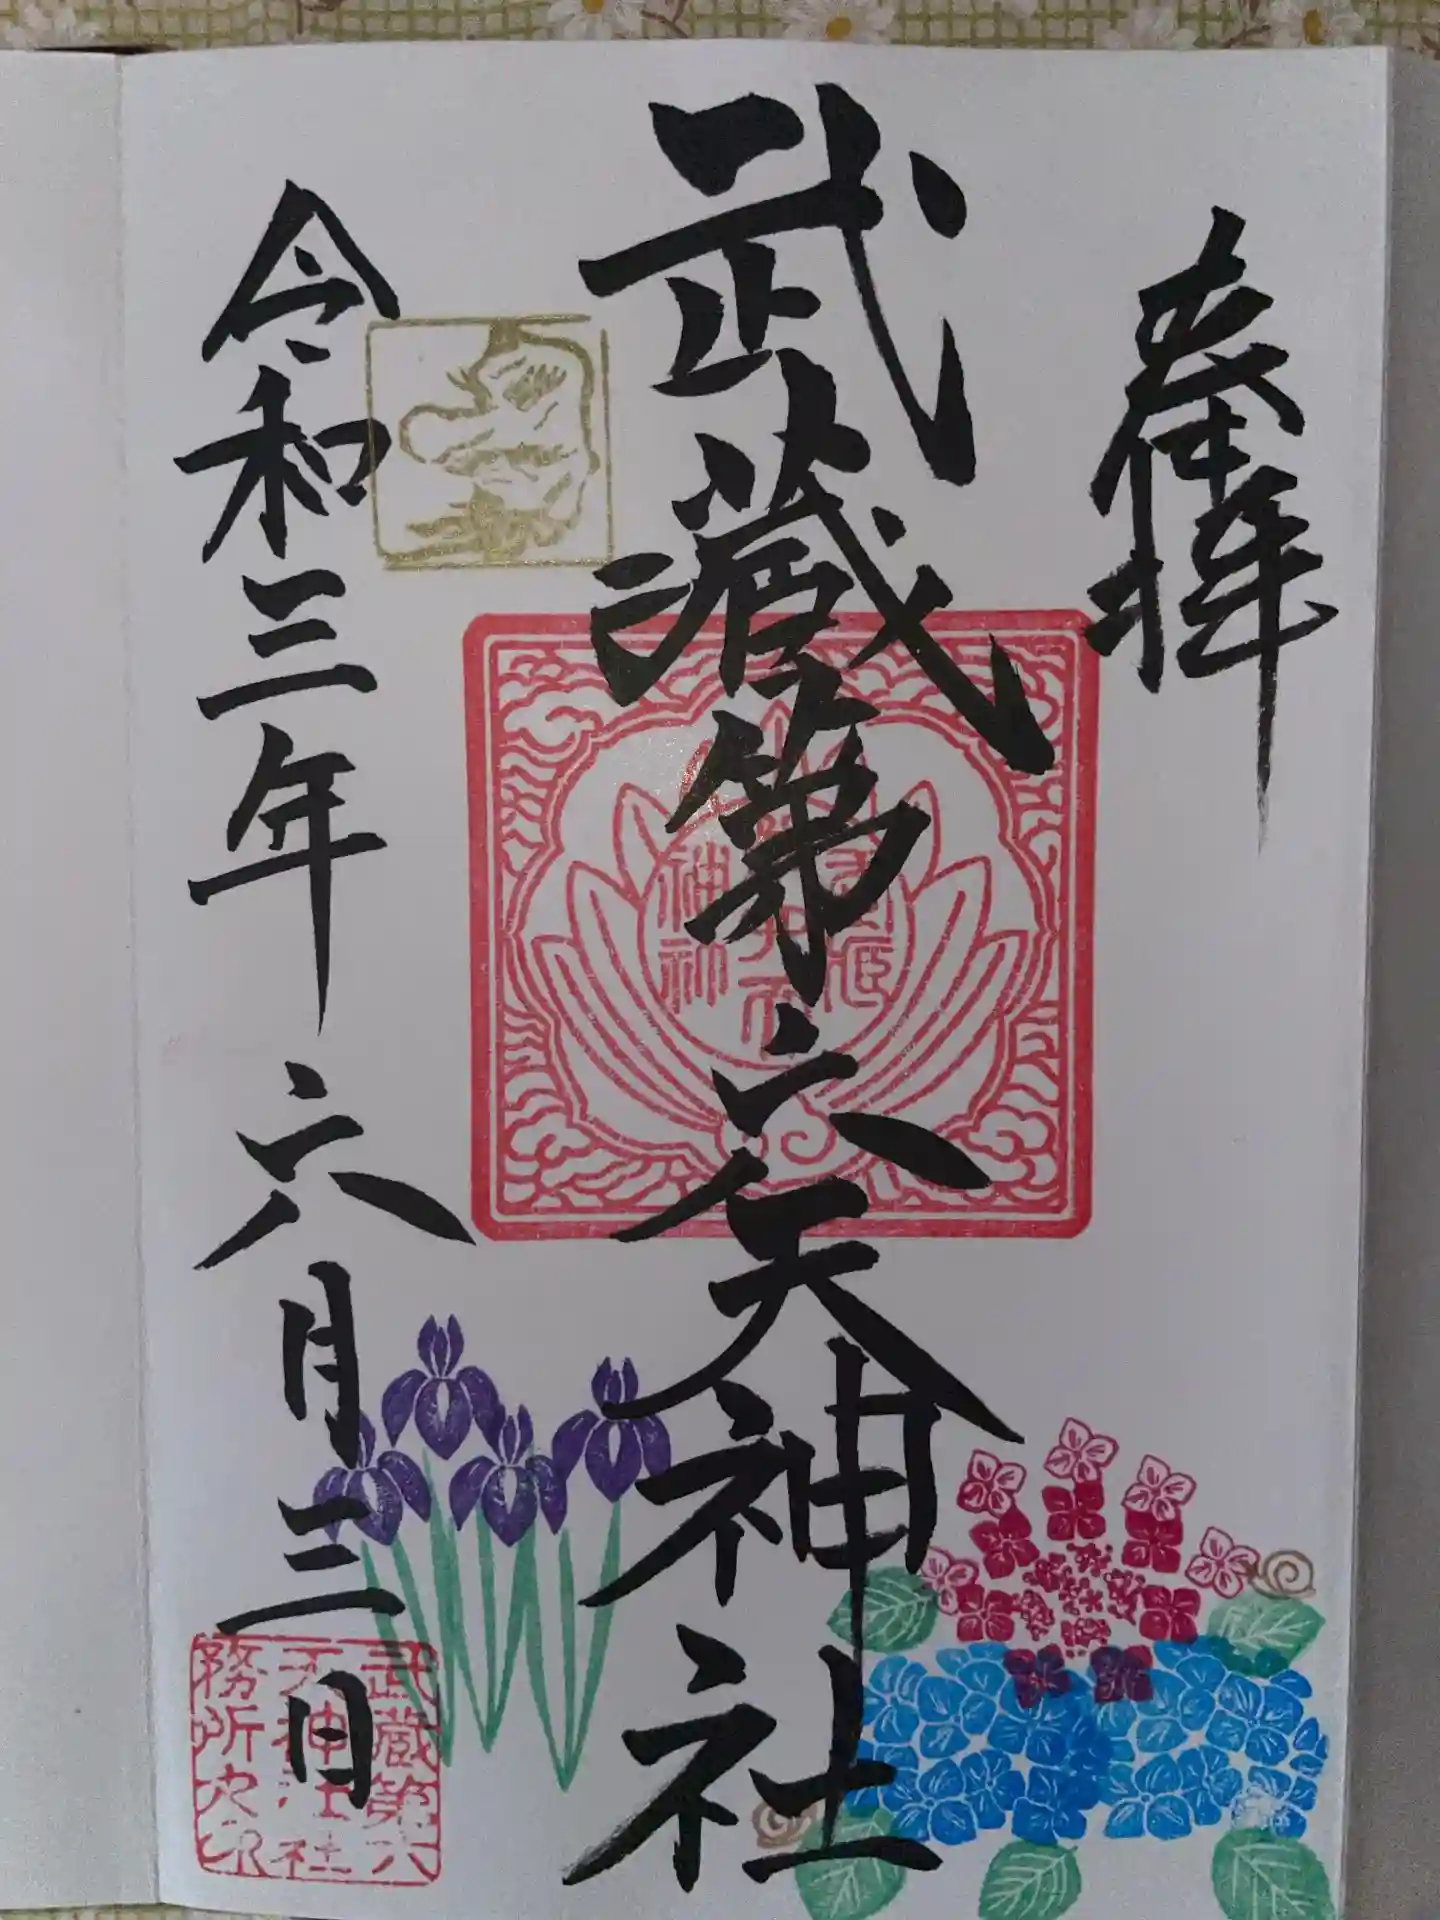 奉拝
武蔵第六天神社
令和三年六月三日
武蔵第六
天神社社
務所之印